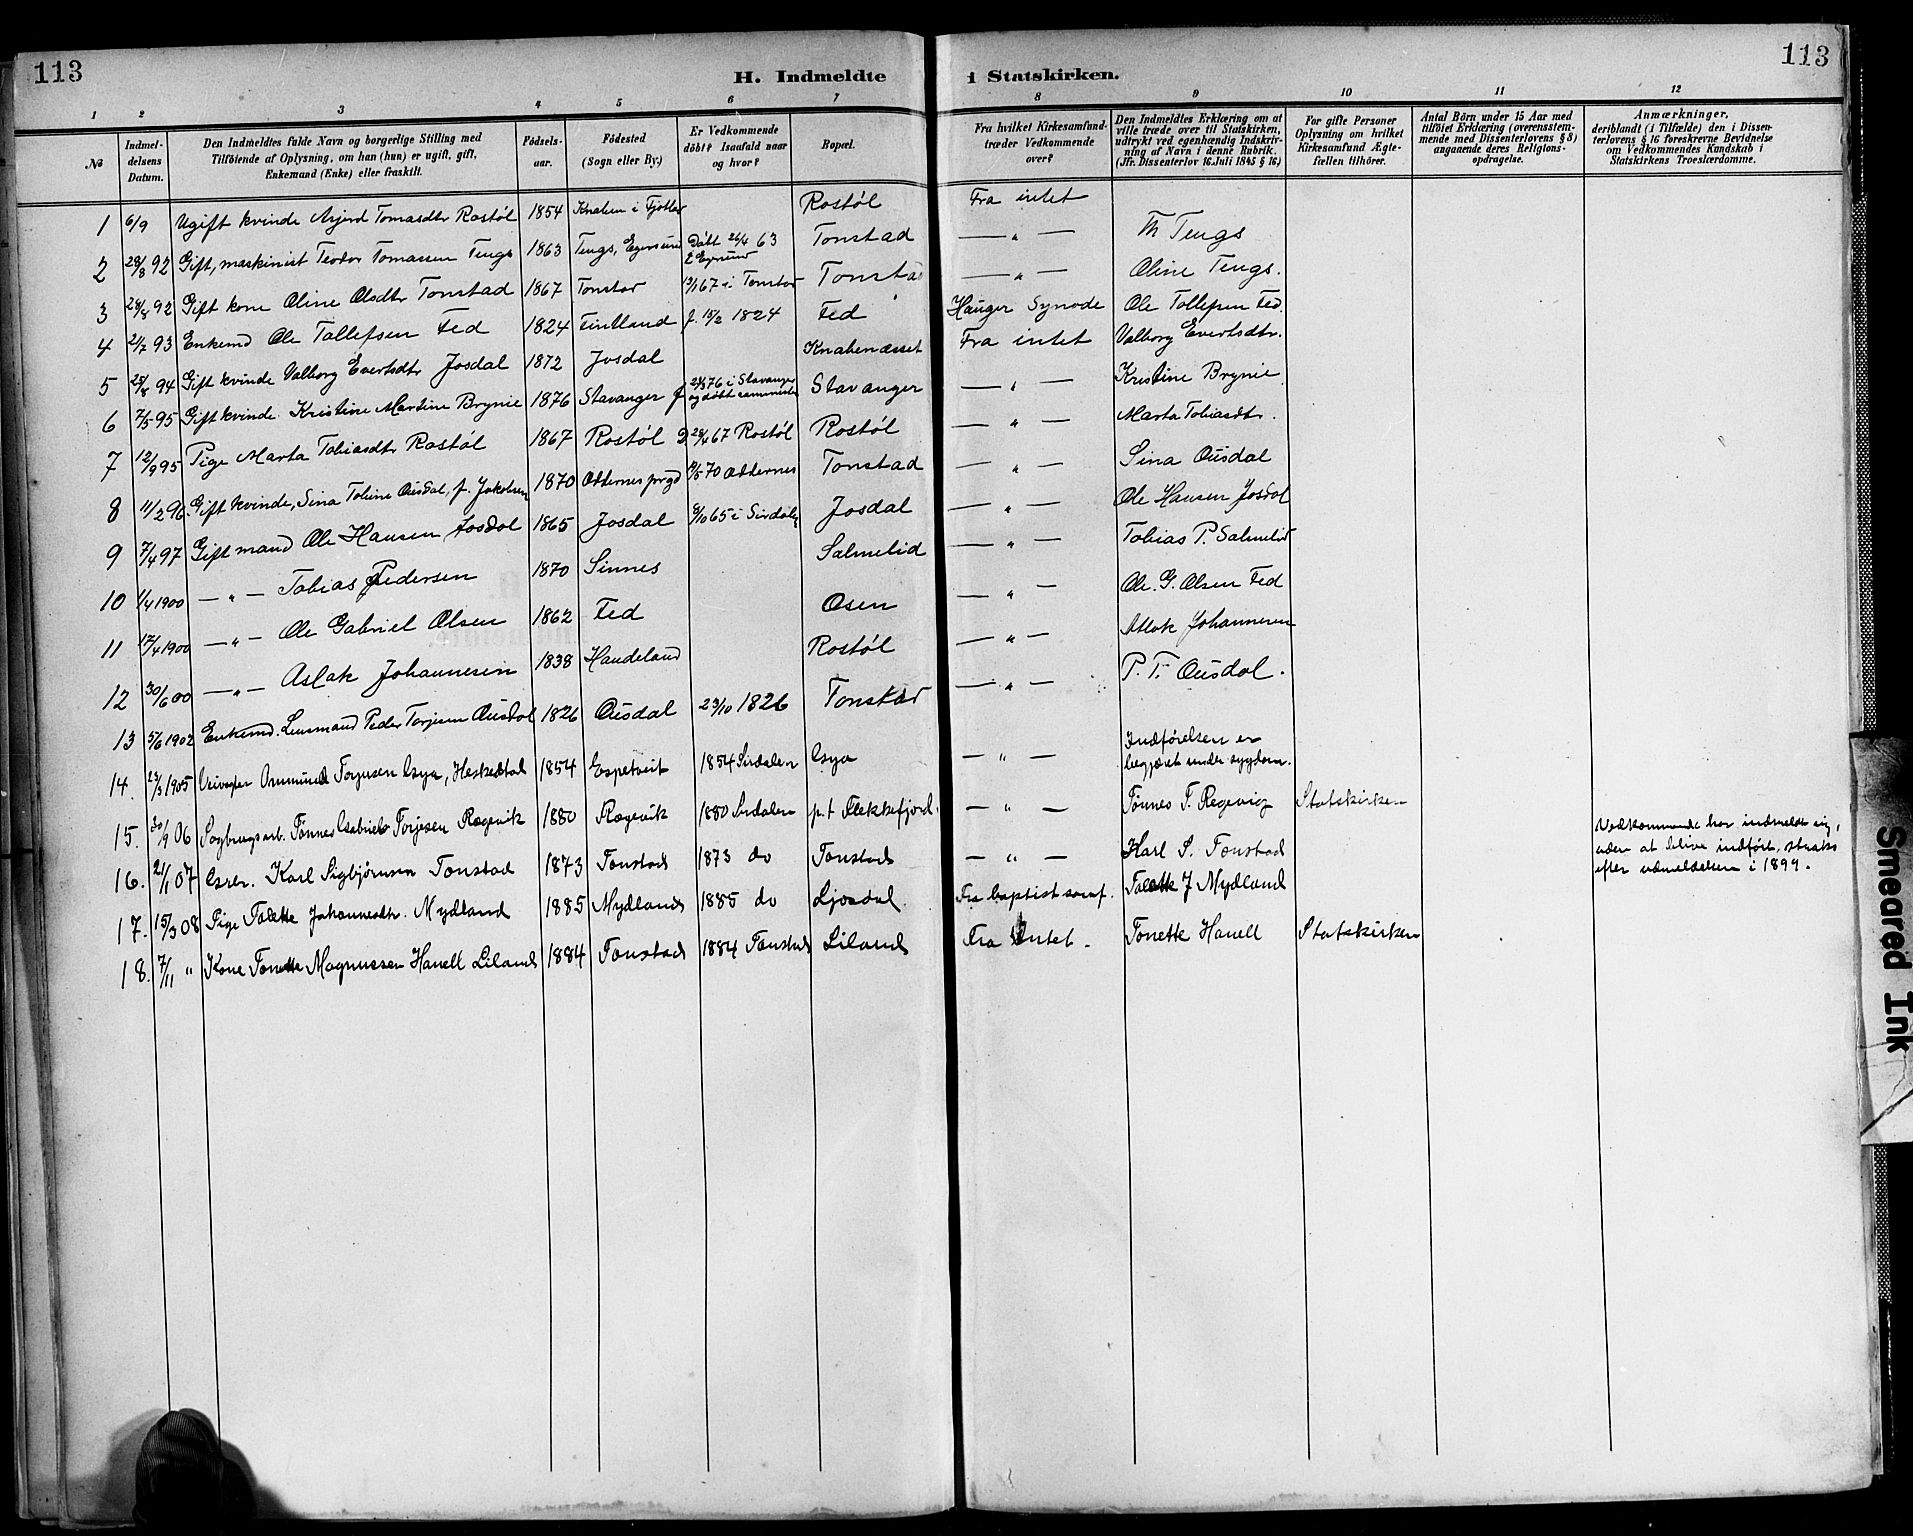 113
H. Indmeldte i Statskirken.
113
1 2 3 4 5 6 7 8 9 10 11 12
No
Indmel-
delsens
Datum.
Den Indmeldtes fulde Navn og borgerlige Stilling med
Tilföiende af Oplysning, om han (hun) er ugift, gift,
Enkemand (Enke) eller fraskilt.
Födsels-
aar.
Födested
(Sogn eller By.)
Er Vedkommende
döbt? Isaafald naar
og hvor?
Bopæl.
Fra hvilket Kirkesamfund
træder Vedkommende
over?
Den Indmeldtes Erklæring om at
ville træde over til Statskirken,
udtrykt ved egenhændig Indskriv-
ning af Navn i denne Rubrik.
(Jfr. Dissenterlov 16. Juli 1845 § 16.)
For gifte Personer
Oplysning om hvilket
Kirkesamfund Ægte-
fællen tilhörer.
Antal Börn under 15 Aar med
tilföiet Erklæring (overensstem-
mende med Dissenterlovens § 8)
angaaende deres Religions-
opdragelse.
Anmærkninger,
deriblandt (i Tilfælde) den i Dissen-
terlovens § 16 foreskrevne Bevidnelse
om Vedkommendes Kundskab i
Statskirkens Troeslærdomme.
1 6/9 Ugift kvinde Asjerd Tomasdtr Rostøl 1854 Knaben i Fjotland Rostøl Fra intet
2 28/8 92 Gift, maskinist Teodor Tomassen Tengs 1863 Tengs, Egersund Døbt 26/4 63 Tonstad — " — Th Tengs
3 28/8 92 Gift kone Oline Olsdtr Tonstad 1867 Tonstad 13/1 67 i Tonstad Tonstad — " — Oline Tengs.
4 2/7 93 Enkemd Ole Tollefsen Fed 1824 Fintland f. 15/2 1824 Fed Hauges Synode Ole Tollefsen Fed.
5 25/8 94 Gift kvinde Valborg Evertsdtr Josdal 1872 Josdal Knabenæsset Fra intet Valborg Evertsdtr.
6 7/5 95 Gift kvinde Kristine Martine Brynie 1876 Stavanger f 23/3 76 i Stavanger og døbt sammesteds Stavanger — " — Kristine Brynie
7 12/9 95 Pige Marta Tobiasdtr Rostøl 1867 Rostøl D 28/4 67 Rostøl Rostøl — " — Marta Tobiasdtr.
8 11/2 96 Gift kvinde, Sina Tobine Ousdal, f. Jakobsen 1870 Oddernes prgd 19/5 70 Oddernes Tonstad — " — Sina Ousdal
9 7/4 97 Gift mand Ole Hansen Josdal 1865 Josdal 9/10 65 i Sirdalen Josdal — " — Ole Hansen Josdal
10 1/4 1900 — " — Tobias Pedersen 1870 Sinnes Salmelid — " — Tobias P. Salmelid
11 17/4 1900 — " — Ole Gabriel Olsen 1862 Fed Osen — " — Ole. G. Olsen Fed
12 30/6 00 — " — Aslak Johannesen 1838 Haudeland Rostøl — " — Atlak Johannesen
13 5/6 1902 Enkemd. Lensmand Peder Torjesen Ousdal 1826 Ousdal 23/10 1826 Tonstad — " — P. T. Ousdal.
14. 23/3 1905 Veivogter Ommund Torjusen Osya, Heskedtal 1854 Espetveit 1854 Sirdalen Osya — " — Indførelsen er
begjæret under sygdom.
15. 30/9 06 Sagbrugsarb. Tønnes Gabriel Torjesen Regevik 1880 Regevik 1880 Sirdalen p.t Flekkefjord. — " — Tønnes T. Regevig Statskirken
16. 21/1 07 Karl Sigbjørnsen Tonstad 1873 Tonstad 1873 do Tonstad — " — Karl S. Tonstad
Vedkommende har indmeldt sig,
uden at blive indført, straks
efter udmeldelsen i 1899.
17. 15/3 08 Pige Talette Johannesdtr. Mydland 1885 Mydland 1885 do Ljosdal. Fra baptist samf. Talette J Mydland
18. 7/11 " Kone Tonette Magnussen Hanell Liland 1884 Tonstad 1884 Tonstad Liland Fra Intet. Tonette Hanell Statskirken
Smeared Ink